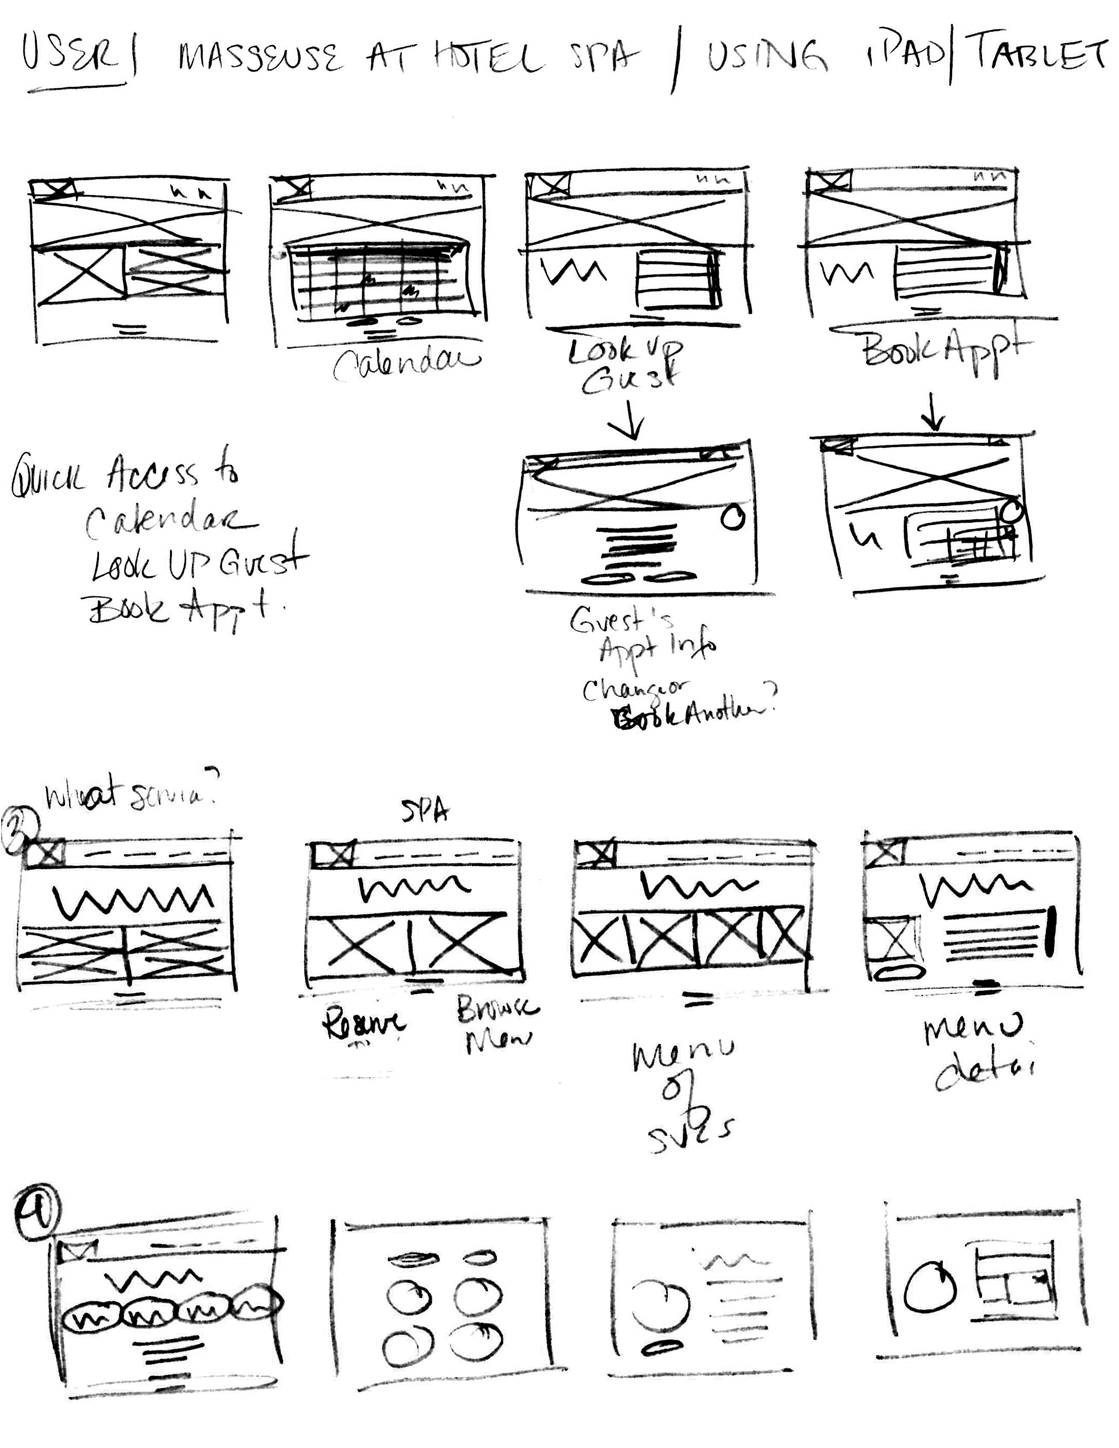 USER / MASSEUSE AT HOTEL SPA / USING iPAD/TABLET
Calendar
Look up
Guest
Book Appt
Quick Access to
Calendar
Look UP Guest
Book Appt.
Guest's
Appt Info
Change or
Book Another?
3
What servic?
SPA
Reserve
Browse
Menu
Menu
of
SVCS
Menu
detai
4